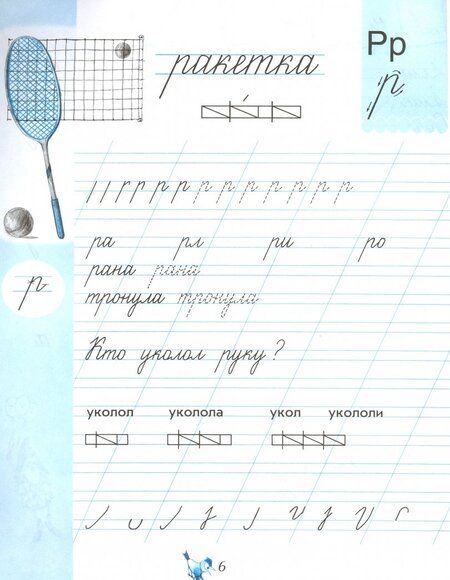 ракетка
Рр
р
р р р р р р р р р р р
ра рл ри ро
р
рана рана
тронула тронула
Кто уколол руку?
уколол уколола укол укололи
6